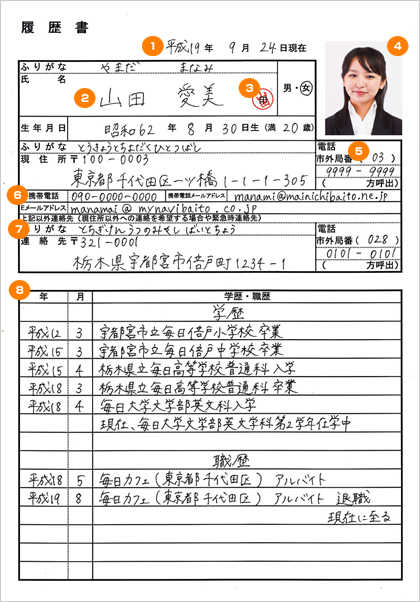 履歴書
1 平成19年 9月 24日現在 4
ふりがな やまだ まなみ
氏名 2 山田 愛美 3 男・女
生年月日 昭和62年 8月 30日生 (満20歳)
ふりがな とうきょうとちよだくひとつばし 電話 5
現住所 〒100-0003 市外局番(03)
東京都千代田区一ツ橋1-1-1-305 9999-9999
(方呼出)
6 携帯電話 090-0000-0000 携帯電話メールアドレス manami@mainichibaito.ne.jp
Eメールアドレス manamai@mynavibaito.co.jp
上記以外連絡先(現住所以外への連絡を希望する場合や緊急時連絡先)
7 ふりがな とちぎけんうつのみやし ばいとちょう 電話
連絡先 〒321-0001 市外局番(028)
栃木県宇都宮市倍戸町1234-1 0101-0101
(方呼出)
8 年 月 学歴・職歴
学歴
平成12 3 宇都宮市立毎日倍戸小学校 卒業
平成15 3 宇都宮市立毎日倍戸中学校 卒業
平成15 4 栃木県立毎日高等学校普通科 入学
平成18 3 栃木県立毎日高等学校普通科 卒業
平成18 4 毎日大学文学部英文科入学
現在、毎日大学文学部英文学科第2学年在学中
職歴
平成18 5 毎日カフェ(東京都千代田区) アルバイト
平成19 8 毎日カフェ(東京都千代田区) アルバイト 退職
現在に至る